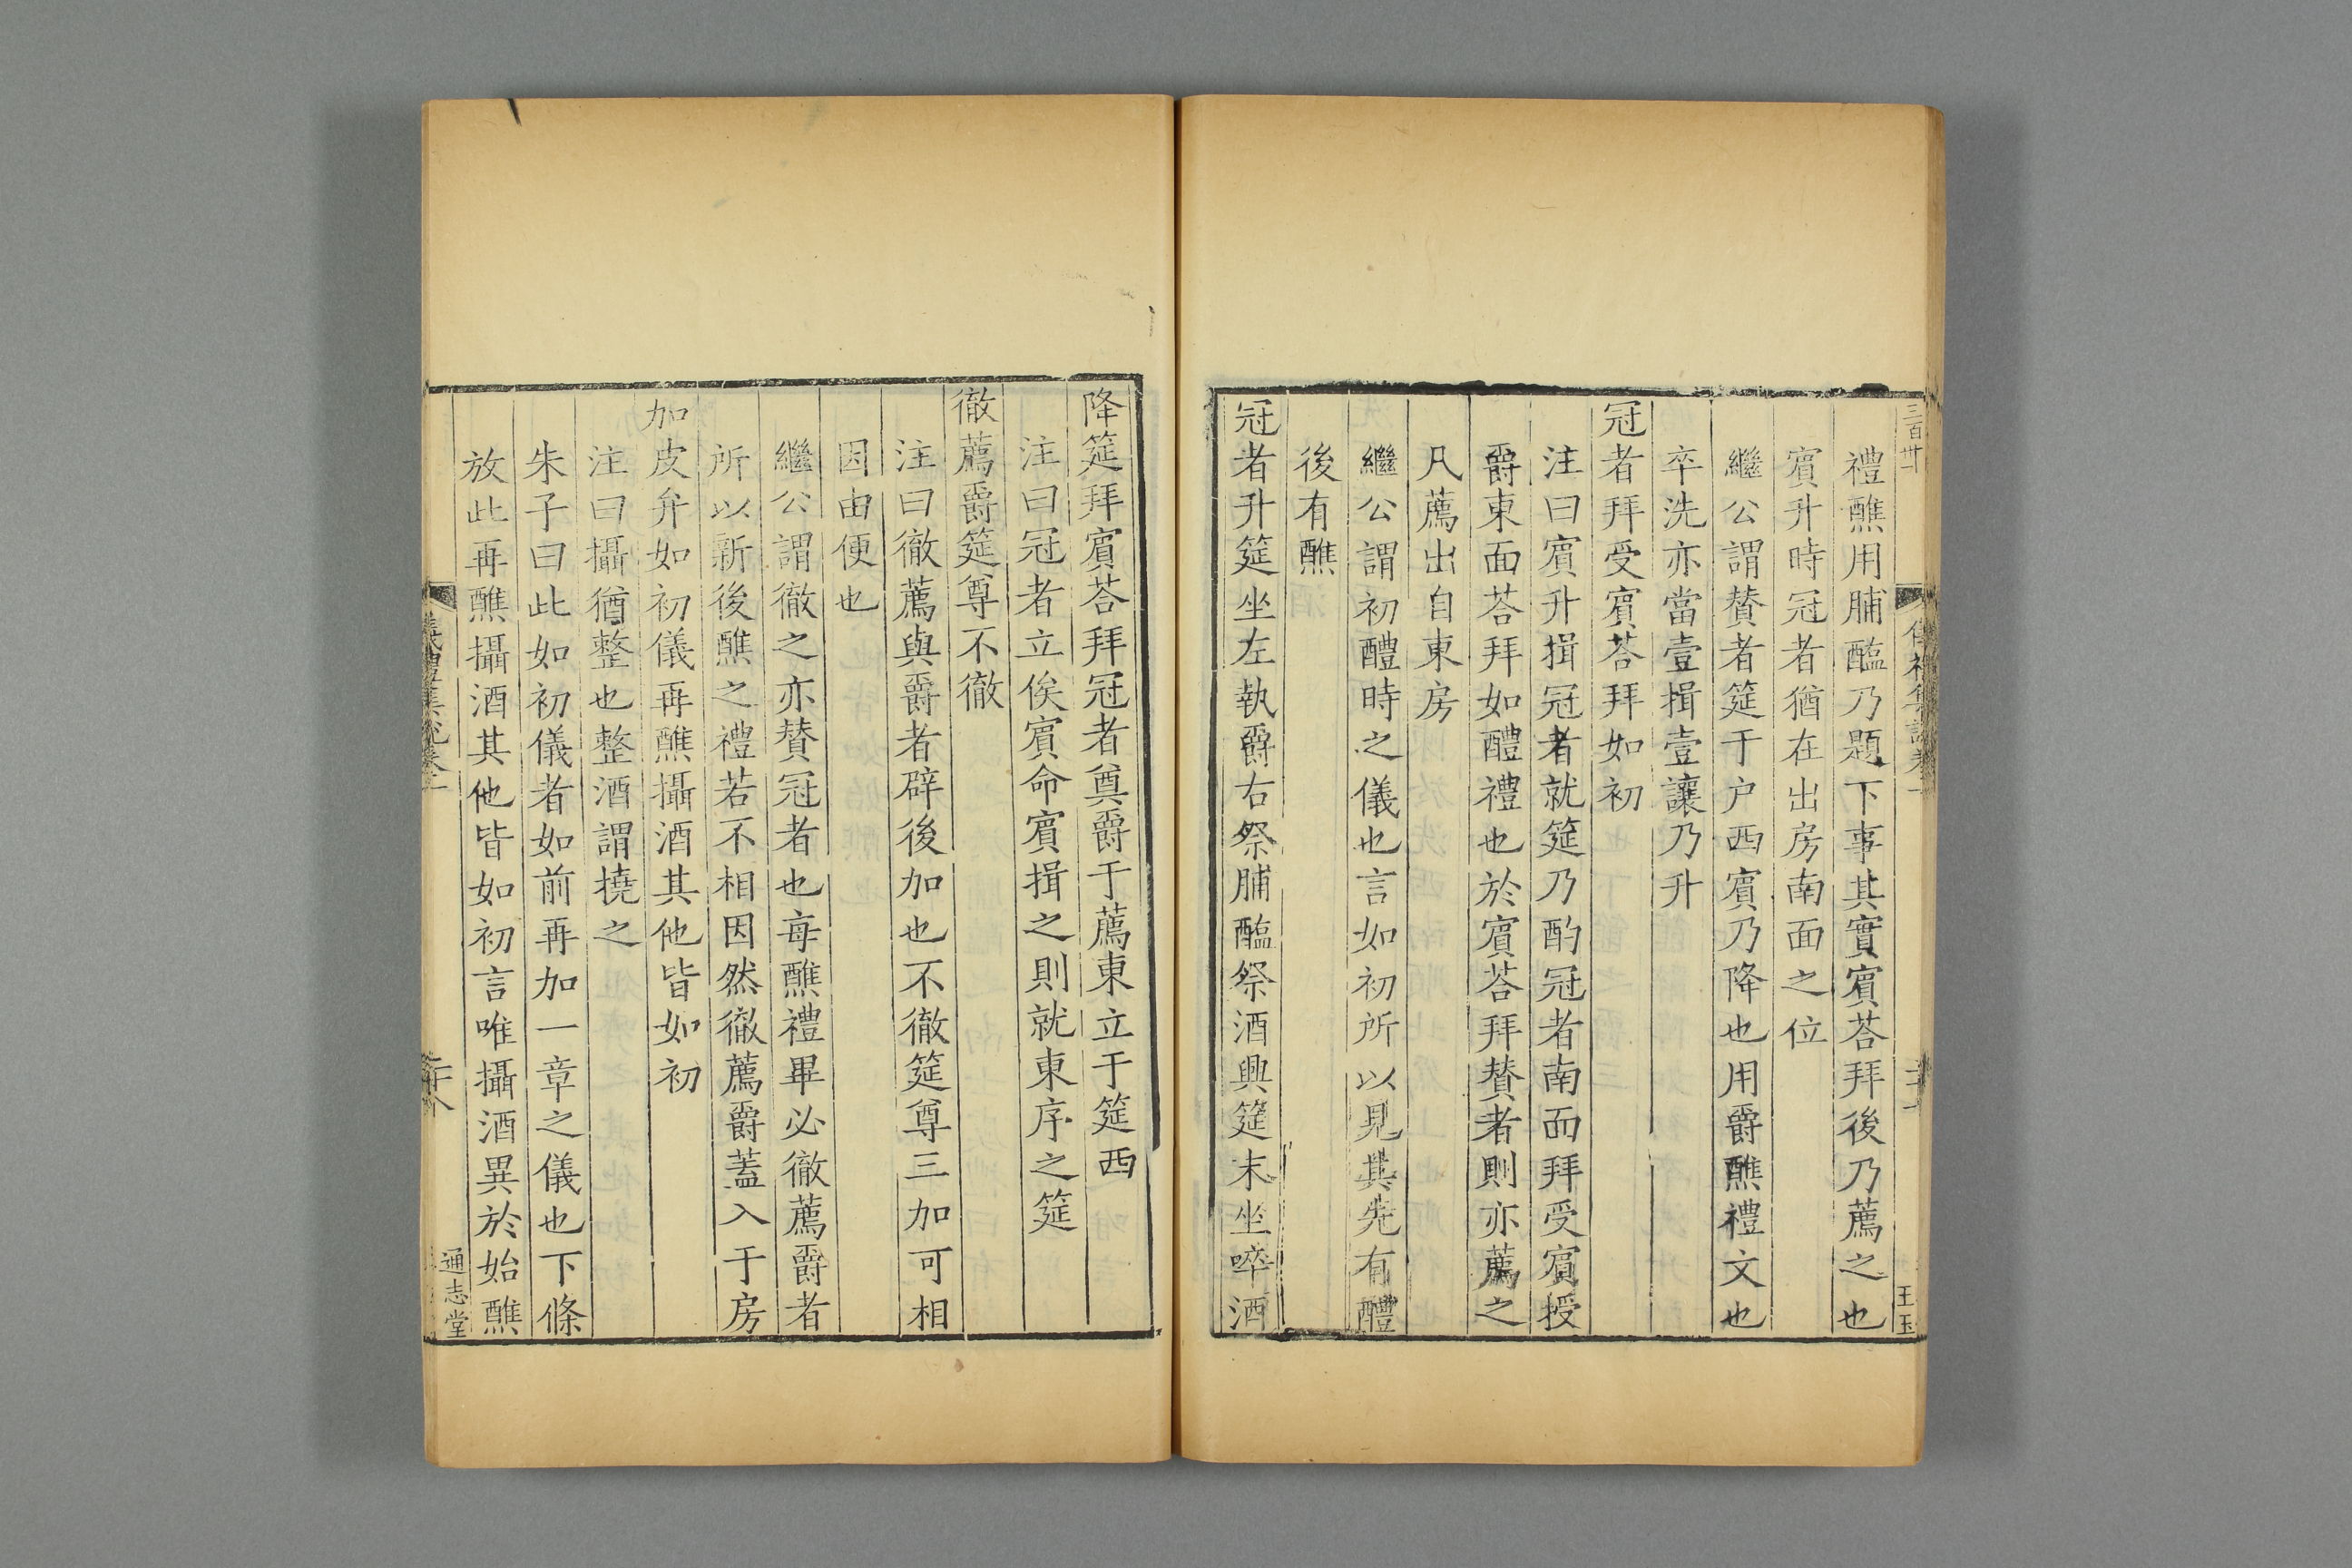 三百卅一
禮醮用脯醢乃題下事其實賔荅拜後乃薦之也
賔升時冠者猶在出房南面之位
繼公謂賛者筵于户西賔乃降也用爵醮禮文也
卒洗亦當壹揖壹讓乃升
冠者拜受賔荅拜如初
注曰賔升揖冠者就筵乃酌冠者南面拜受賔授
爵東面荅拜如醴禮也於賔荅拜賛者則亦薦之
凡薦出自東房
繼公謂初醴時之儀也言如初所以見其先有醴
後有醮
冠者升筵坐左執爵右祭脯醢祭酒興筵末坐啐酒
王玉
降筵拜賔荅拜冠者奠爵于薦東立于筵西
注曰冠者立俟賔命賔揖之則就東序之筵
徹薦爵筵尊不徹
注曰徹薦與爵者辟後加也不徹筵尊三加可相
因由便也
繼公謂徹之亦賛冠者也每醮禮畢必徹薦爵者
所以新後醮之禮若不相因然徹薦爵蓋入于房
加皮弁如初儀再醮攝酒其他皆如初
注曰攝猶整也整酒謂撓之
朱子曰此如初儀者如前再加一章之儀也下條
放此再醮攝酒其他皆如初言唯攝酒異於始醮
儀禮集說卷一
通志堂